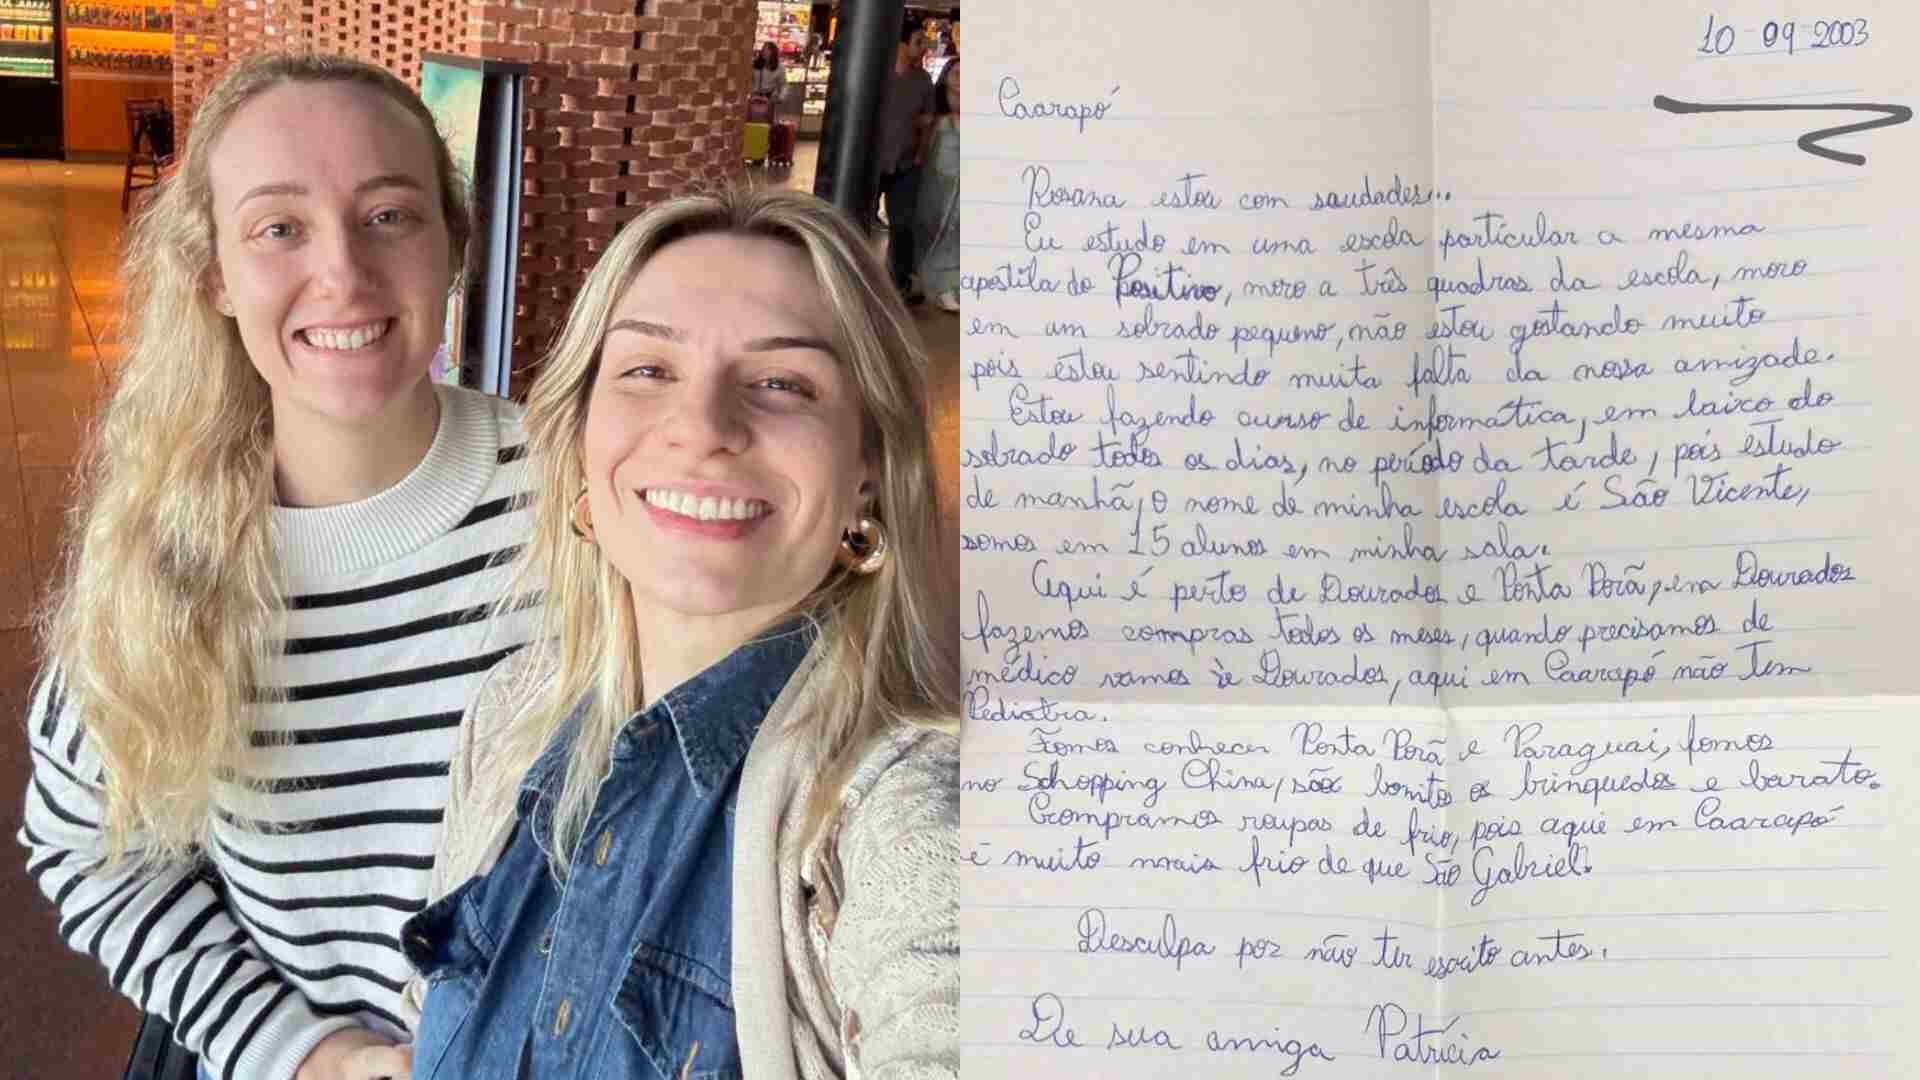 10-09-2003
Caarapó
Rosana estou com saudades...
Eu estudo em uma escola particular a mesma
apostila do Positivo, moro a três quadras da escola, moro
em um sobrado pequeno, não estou gostando muito
pois estou sentindo muita falta da nossa amizade.
Estou fazendo curso de informática, em baixo do
sobrado todos os dias, no período da tarde, pois estudo
de manhã, o nome de minha escola é São Vicente,
somos em 15 alunos em minha sala.
Aqui é perto de Dourados e Ponta Porã, em Dourados
fazemos compras todos os meses, quando precisamos de
médico vamos à Dourados, aqui em Caarapó não tem
Pediatra.
Fomos conhecer Ponta Porã e Paraguai, fomos
no Schopping China, são bonitos os brinquedos e barato.
Compramos roupas de frio, pois aqui em Caarapó
é muito mais frio de que São Gabriel.
Desculpa por não ter escrito antes.
De sua amiga Patrícia